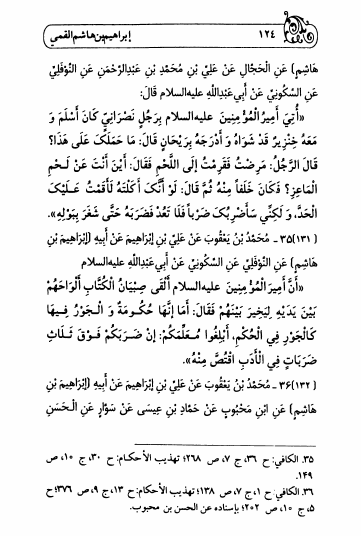 ١٢٤ ابراهيم بن هاشم القمي
هَاشِمٍ) عَنِ الْحَجَّالِ عَنْ عَلِيِّ بْنِ مُحَمَّدِ بْنِ عَبْدِالرَّحْمَنِ عَنِ النَّوْفَلِيِّ
عَنِ السَّكُونِيِّ عَنْ أَبِي عَبْدِاللهِ عليه‌السلام قَالَ:
«أُتِيَ أَمِيرُ الْمُؤْمِنِينَ عليه‌السلام بِرَجُلٍ نَصْرَانِيٍّ كَانَ أَسْلَمَ وَ
مَعَهُ خِنْزِيرٌ قَدْ شَوَاهُ وَ أَدْرَجَهُ بِرَيْحَانٍ قَالَ: مَا حَمَلَكَ عَلَى هَذَا؟
قَالَ الرَّجُلُ: مَرِضْتُ فَقَرِمْتُ إِلَى اللَّحْمِ فَقَالَ: أَيْنَ أَنْتَ عَنْ لَحْمِ
الْمَاعِزِ؟ فَكَانَ خَلَفاً مِنْهُ ثُمَّ قَالَ: لَوْ أَنَّكَ أَكَلْتَهُ لَأَقَمْتُ عَلَيْكَ
الْحَدَّ، وَ لَكِنِّي سَأَضْرِبُكَ ضَرْباً فَلَا تَعُدْ فَضَرَبَهُ حَتَّى شَغَرَ بِبَوْلِهِ».
(١٣١) ٣٥ ـ مُحَمَّدُ بْنُ يَعْقُوبَ عَنْ عَلِيِّ بْنِ إِبْرَاهِيمَ عَنْ أَبِيهِ (إِبْرَاهِيمَ بْنِ
هَاشِمٍ) عَنِ النَّوْفَلِيِّ عَنِ السَّكُونِيِّ عَنْ أَبِي عَبْدِاللهِ عليه‌السلام
«أَنَّ أَمِيرَ الْمُؤْمِنِينَ عليه‌السلام أَلْقَى صِبْيَانُ الْكُتَّابِ أَلْوَاحَهُمْ
بَيْنَ يَدَيْهِ لِيَخِيرَ بَيْنَهُمْ فَقَالَ: أَمَا إِنَّهَا حُكُومَةٌ وَ الْجَوْرُ فِيهَا
كَالْجَوْرِ فِي الْحُكْمِ، أَبْلِغُوا مُعَلِّمَكُمْ: إِنْ ضَرَبَكُمْ فَوْقَ ثَلَاثِ
ضَرَبَاتٍ فِي الْأَدَبِ اقْتُصَّ مِنْهُ».
(١٣٢) ٣٦ ـ مُحَمَّدُ بْنُ يَعْقُوبَ عَنْ عَلِيِّ بْنِ إِبْرَاهِيمَ عَنْ أَبِيهِ (إِبْرَاهِيمَ بْنِ
هَاشِمٍ) عَنِ ابْنِ مَحْبُوبٍ عَنْ حَمَّادِ بْنِ عِيسَى عَنْ سَوَّارٍ عَنِ الْحَسَنِ
٣٥. الكافي: ح ٣٦، ج ٧، ص ٢٦٨؛ تهذيب الأحكام: ح ٣٠، ج ١٠، ص
١٤٩.
٣٦. الكافي: ح ١، ج ٧، ص ١٣٨؛ تهذيب الأحكام: ح ١٣، ج ٩، ص ٣٧٦؛ ح
٥، ج ١٠، ص ٢٠٢؛ بإسناده عن الحسن بن محبوب.